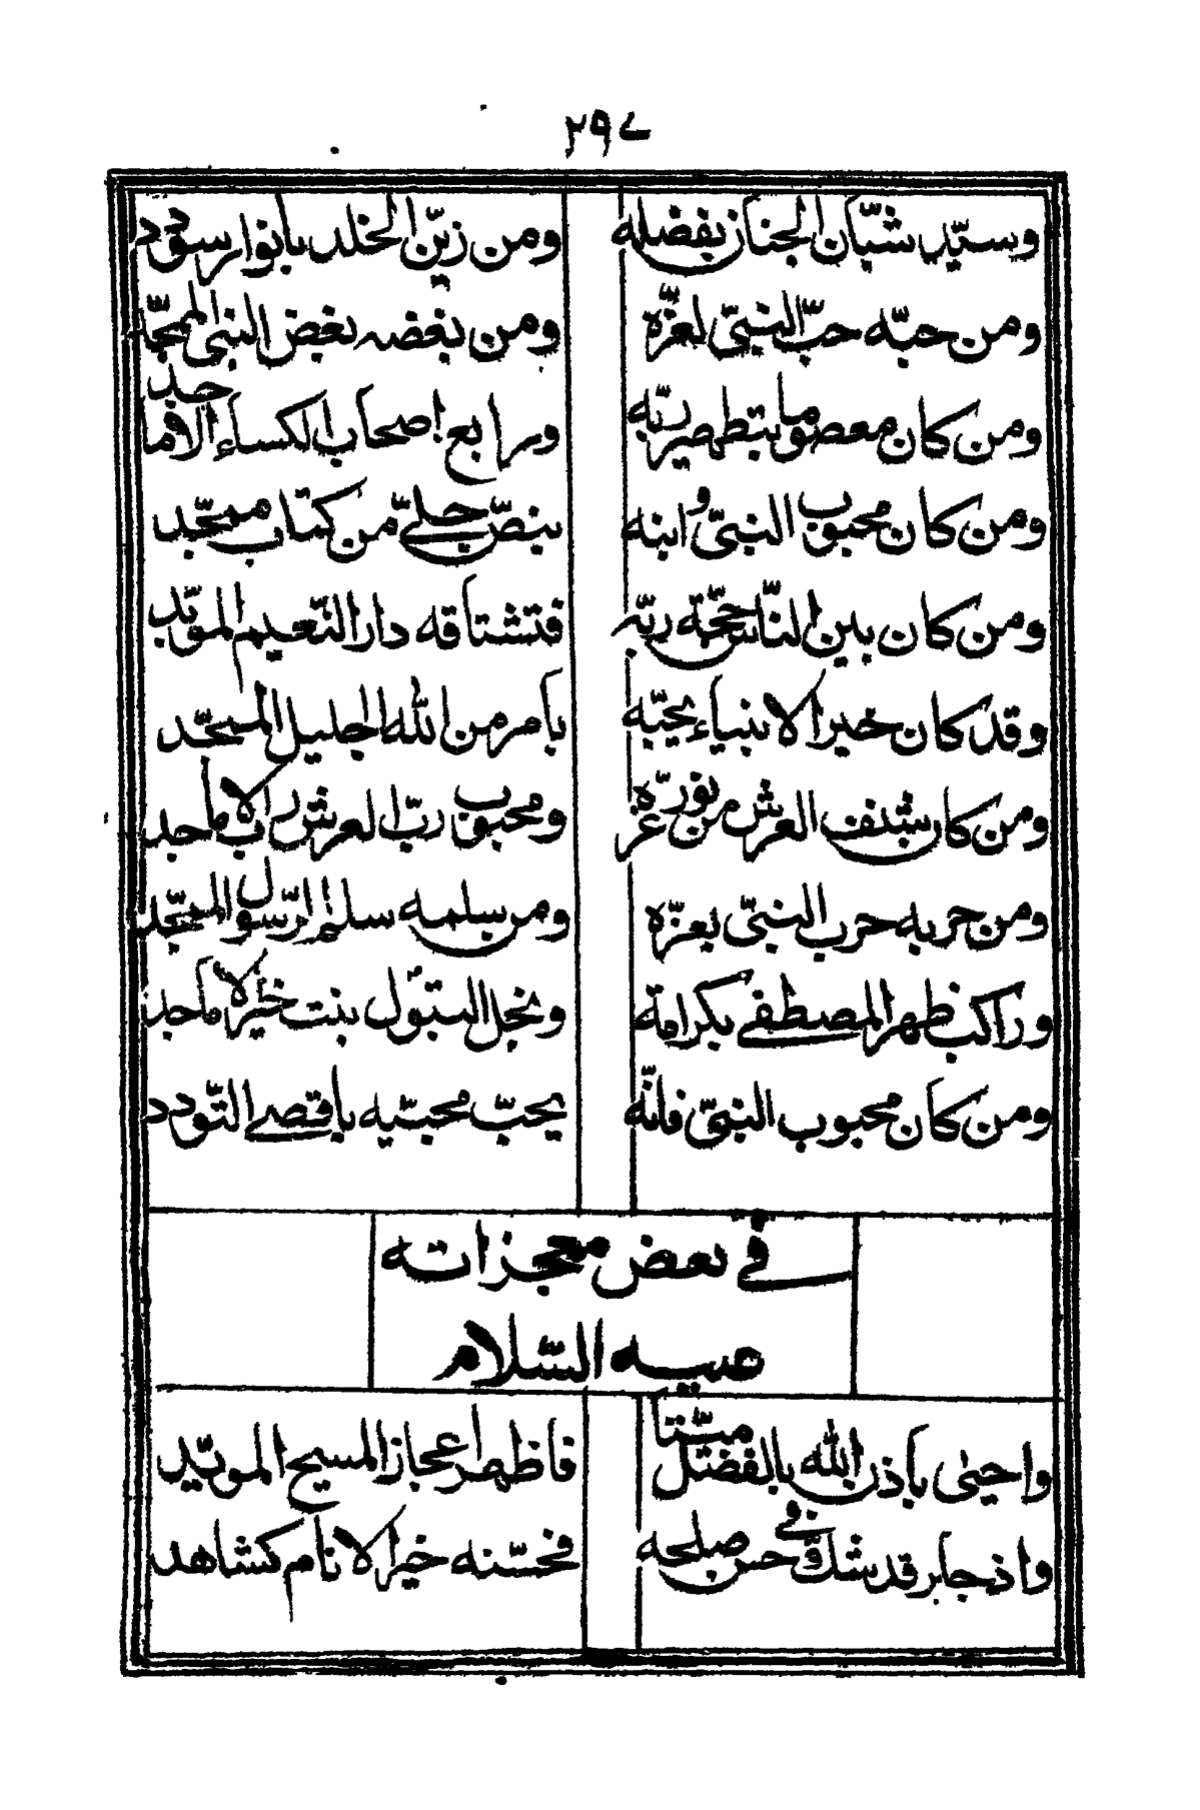 ٢٩٧
وسيّد شبّان الجنان بفضله ومن زيّن الخلد بانوار سودد
ومن حبّه حبّ النبيّ لعزّه ومن بغضه بغض النبي الممجّد
ومن كان معصوما بتطهير ربّه ورابع اصحاب الكساء الاماجد
ومن كان محبوب النبيّ وابنه بنصّ جليّ من كتاب ممجّد
ومن كان بين النّاس حجّة ربّه فتشتاقه دار النّعيم المويّد
وقد كان خير الانبياء يحبّه بامر من الله الجليل الممجّد
ومن كان شنف العرش من نور عزّه ومحبوب ربّ العرش ربّ الاماجد
ومن حربه حرب النبيّ بعزّه ومن سلمه سلم الرّسول الممجّد
وراكب ظهر المصطفى بكرامة ونجل البتول بنت خير الاماجد
ومن كان محبوب النبيّ فانّه يحبّ محبّيه باقصى التّودد
في بعض معجزاته
عليه السّلام
واحيى باذن الله بالفضل ميّتا فاظهر اعجاز المسيح المويّد
واذ جابر قد شكّ في حسن صلحه فحسّنه خير الانام كشاهد